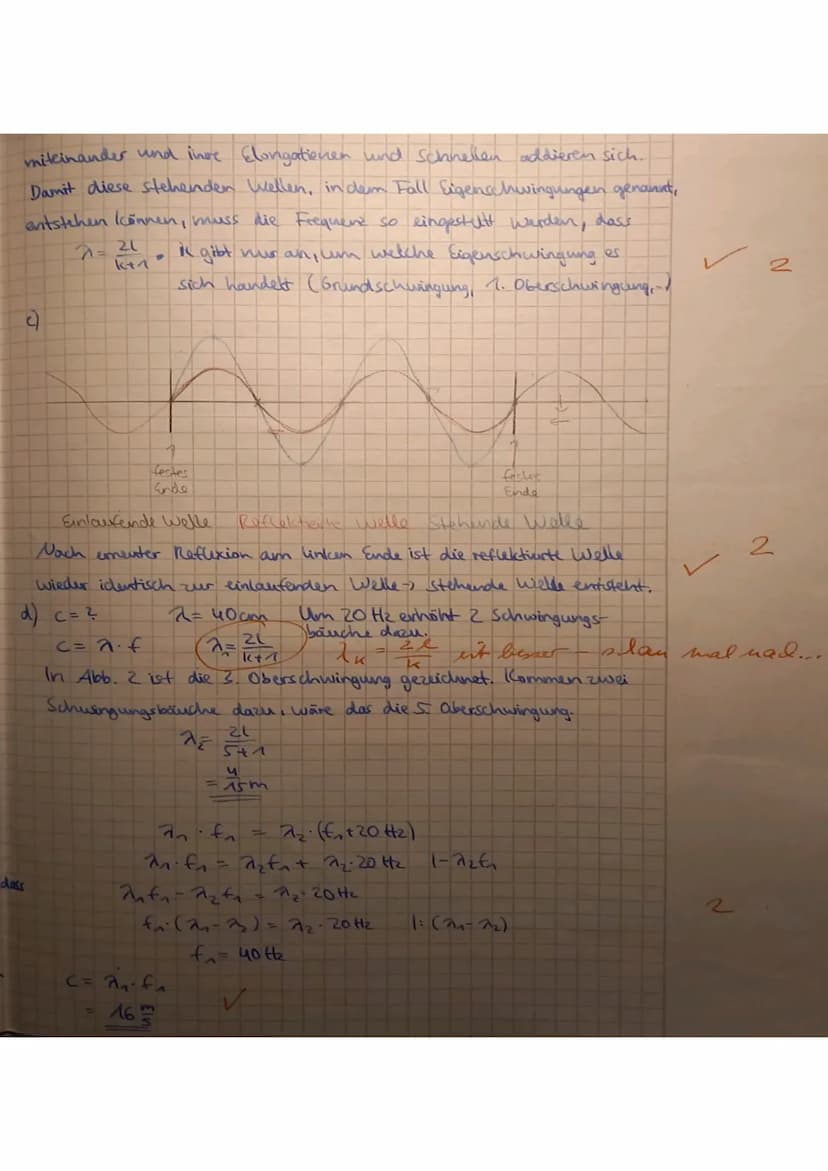 miteinander und ihre Elongationen und Schnellen addieren sich.
Damit diese stehenden Wellen, in dem Fall Eigenschwingungen genannt,
entstehen können, muss die Frequenz so eingestellt werden, dass
λ = 2l/(k+1). k gibt nur an, um welche Eigenschwingung es
sich handelt (Grundschwingung, 1. Oberschwingung, ...)
✓ 2
c)
festes Ende
festes Ende
Einlaufende Welle Reflektierte Welle Stehende Welle
Nach erneuter Reflexion am linken Ende ist die reflektierte Welle
wieder identisch zur einlaufenden Welle → stehende Welle entsteht.
✓ 2
d) c = ? λ = 40cm Um 20 Hz erhöht 2 Schwingungs-
bäuche dazu.
c = λ · f λ₁ = 2l/(k+1) λk = 2l/k ist besser – mal nach...
In Abb. 2 ist die 3. Oberschwingung gezeichnet. Kommen zwei
Schwingungsbäuche dazu, wäre das die 5. Oberschwingung.
λ₂ = 2l/(5+1)
= 4/15 m
λ₁ · f₁ = λ₂ · (f₁ + 20 Hz)
λ₁ · f₁ = λ₂f₁ + λ₂ · 20 Hz |-λ₂f₁
dass
λ₁f₁ - λ₂f₁ = λ₂ · 20 Hz
2
f₁ · (λ₁ - λ₂) = λ₂ · 20 Hz |: (λ₁ - λ₂)
f₁ = 40 Hz
c = λ₁ · f₁
= 16 m/s ✓